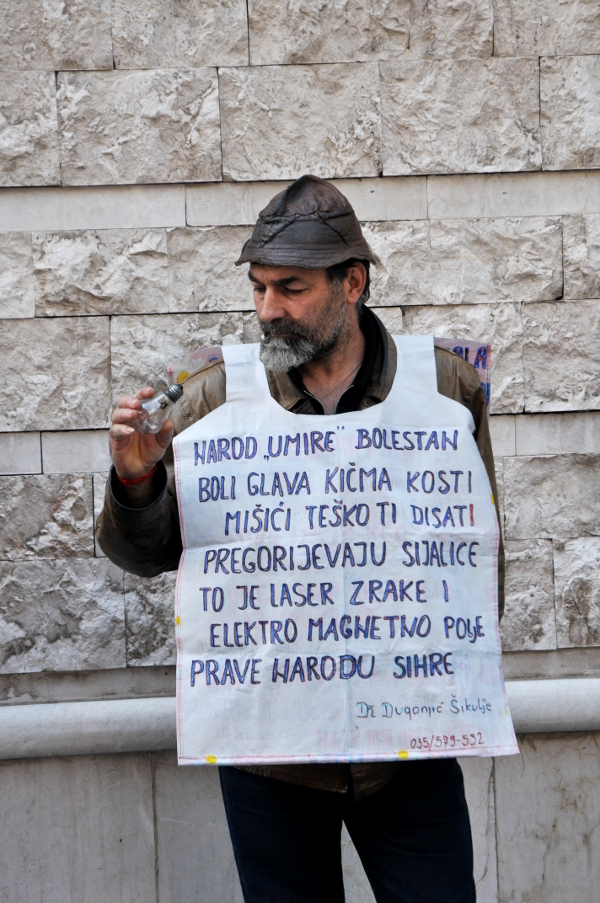 NAROD „UMIRE" BOLESTAN
BOLI GLAVA KIČMA KOSTI
MIŠIĆI TEŠKO TI DISATI
PREGORIJEVAJU SIJALICE
TO JE LASER ZRAKE I
ELEKTRO MAGNETNO POLJE
PRAVE NARODU SIHRE
Dr Dugonjić Šikulje
035/579-532